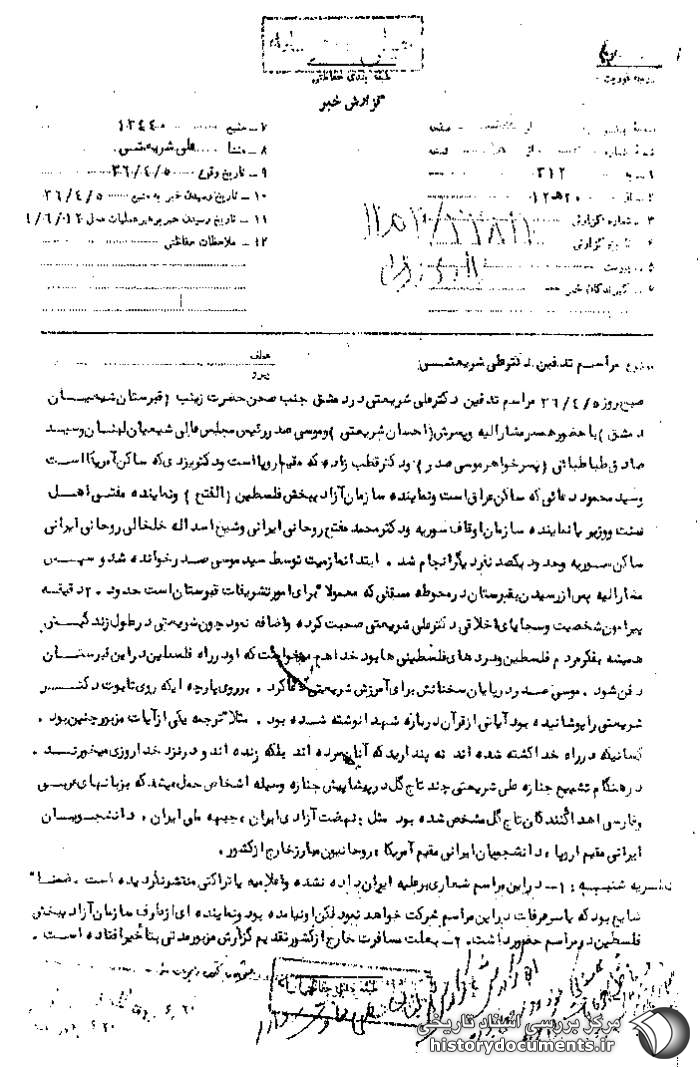 خیلی محرمانه
طبقه بندی حفاظتی
گزارش خبر
درجه فوریت
۷ ـ منبع ۱۳۴۴۰
۸ ـ منشا علی شریعتی
۹ ـ تاریخ وقوع ۳۶/۴/۵
۱۰ ـ تاریخ رسیدن خبر به منبع ۳۶/۴/۵
۱۱ ـ تاریخ رسیدن خبر به رهبر عملیات محل
۱۲ ـ ملاحظات حفاظتی
۱ ـ به ۳۱۲
۲ ـ از ۲۰ ه ۱۲
۳ ـ شماره گزارش
۴ ـ تاریخ گزارش
۵ ـ پیوست
۶ ـ گیرندگان خبر
موضوع مراسم تدفین دکترعلی شریعتی
هدف
صبح روز ۳۶/۴/۵ مراسم تدفین دکترعلی شریعتی در دمشق جنب صحن حضرت زینب (قبرستان شیعیان
دمشق) با حضور همسر مشارالیه و پسرش (احسان شریعتی) و موسی صدر رئیس مجلس عالی شیعیان لبنان و سید
صادق طباطبائی (پسرخواهر موسی صدر) و دکتر قطب زاده که مقیم اروپا است و دکتر یزدی که ساکن آمریکا است
و سید محمود دعائی که ساکن عراق است و نماینده سازمان آزادیبخش فلسطین (الفتح) و نماینده مفتی اهل
تسنت و وزیر یا نماینده سازمان اوقاف سوریه و دکتر محمد مفتح روحانی ایرانی و شیخ اسداله خلخالی روحانی ایرانی
ساکن سوریه و حدود یکصد نفر دیگر انجام شد . ابتدا نماز میت توسط سید موسی صدر خوانده شد و سپس
مشارالیه پس از رسیدن بقبرستان در محوطه مسقفی که معمولا" برای امور تشریفات قبرستان است حدود ۲۰ دقیقه
پیرامون شخصیت و سجایای اخلاقی دکترعلی شریعتی صحبت کرده و اضافه نمود چون شریعتی در طول زندگیش
همیشه بفکر مردم فلسطین و درد های فلسطینی ها بود خدا هم میخواست که او در راه فلسطین در این قبرستان
دفن شود . موسی صدر در پایان سخنانش برای آمرزش شریعتی دعا کرد . بر روی پارچه ایکه روی تابوت دکتر
شریعتی را پوشانیده بود آیاتی از قرآن درباره شهدا نوشته شده بود . مثلا" ترجمه یکی از آیات مزبور چنین بود .
کسانیکه در راه خدا کشته شده اند نه پندارید که آنان مرده اند بلکه زنده اند و در نزد خدا روزی میخورند .
در هنگام تشییع جنازه علی شریعتی چند تاج گل در پیشاپیش جنازه وسیله اشخاص حمل میشد که بزبانهای عربی
و فارسی اهدا کنندگان تاج گل مشخص شده بود مثل : نهضت آزادی ایران ، جبهه ملی ایران ، دانشجویان
ایرانی مقیم اروپا ، دانشجویان ایرانی مقیم آمریکا ، روحانیون مبارز خارج از کشور .
نظریه شنبه : ۱ ـ در این مراسم شعاری بر علیه ایران داده نشده و اعلامیه یا تراکتی منتشر نگردیده است . ضمنا"
شایع بود که یاسر عرفات در این مراسم شرکت خواهد نمود لکن او نیامده بود و نماینده ای از طرف سازمان آزادیبخش
فلسطین در مراسم حضور داشت . ۲ ـ بعلت مسافرت خارج از کشور تقدیم گزارش مزبور مدتی بتاخیر افتاده است .
طبقه بندی حفاظتی
مرکز بررسی اسناد تاریخی
historydocuments.ir